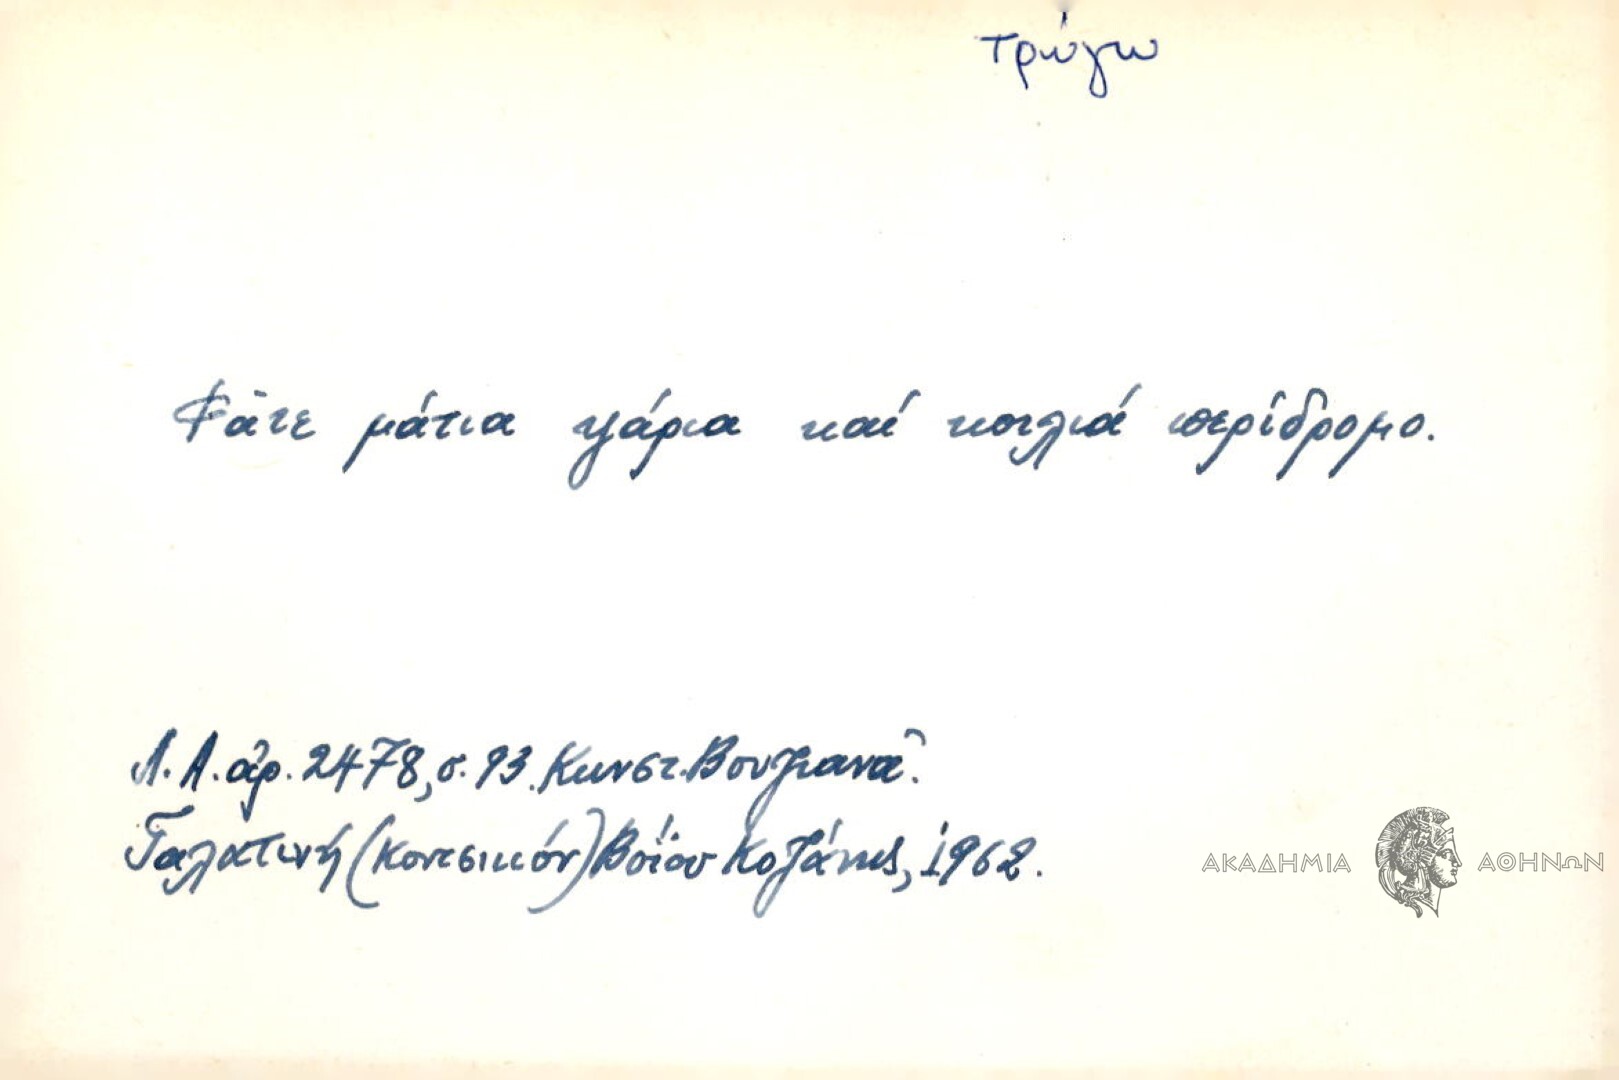 τρώγω
Φᾶτε μάτια ψάρια καί κοιλιά περίδρομο.
Λ.Α. ἀρ. 2478, σ. 93. Κωνστ. Βουζιανᾶ.
Γαλατινή (Κοντσικόν) Βοΐου Κοζάνης, 1962.
ΑΚΑΔΗΜΙΑ ΑΘΗΝΩΝ